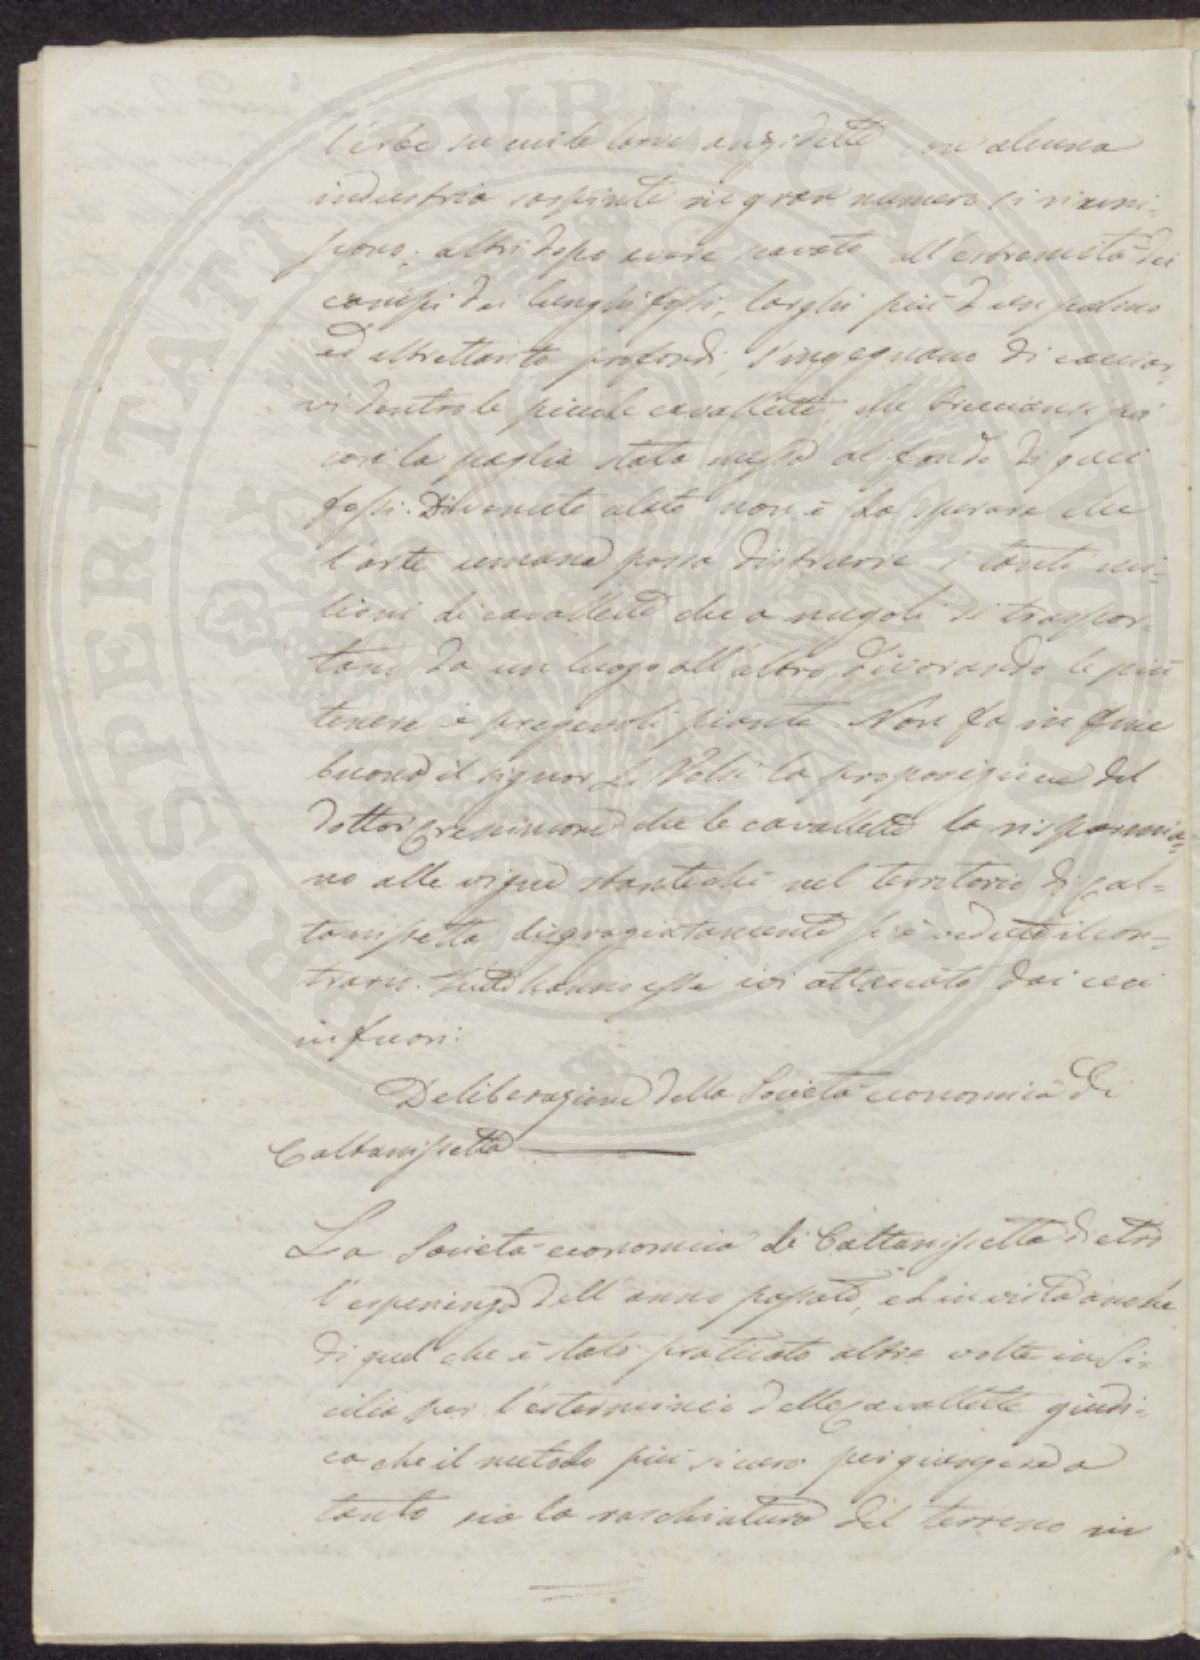 l'erbe su cui le larve anzidette con alcuna
industria sospinte in gran numero si riuni-
scono; altri dopo avere scavato all'estremità dei
campi dei lunghi fossi, larghi più d'un palmo
ed altrettanto profondi, s'ingegnano di cacciar-
vi dentro le piccole cavallette, che bruciansi poi
con la paglia stata messa al fondo di quei
fossi. Divenute alate non è da sperare che
l'arte umana possa distruere i tanti mi-
lioni di cavallette che a nugoli si traspor-
tano da un luogo all'altro, divorando le più
tenere e pregevoli piante. Non fa in fine
buona il signor Li Volsi la proposizione del
dottor che le cavallette la risparmia-
no alle vigne stanteché nel territorio di Cal-
tanissetta disgraziatamente si è veduto il con-
trario. hanno esse ivi attaccato dai ceci
in fuori.
Deliberazione della Società economica di
Caltanissetta
La Società economica di Caltanissetta dietro
l'esperienza dell'anno passato, ed in vista anche
di quel che è stato praticato altre volte in Si-
cilia per l'esterminio delle cavallette giudi-
ca che il metodo più sicuro per giungere a
tanto sia la raschiatura del terreno in
PROSPERITATI PVBLICAE